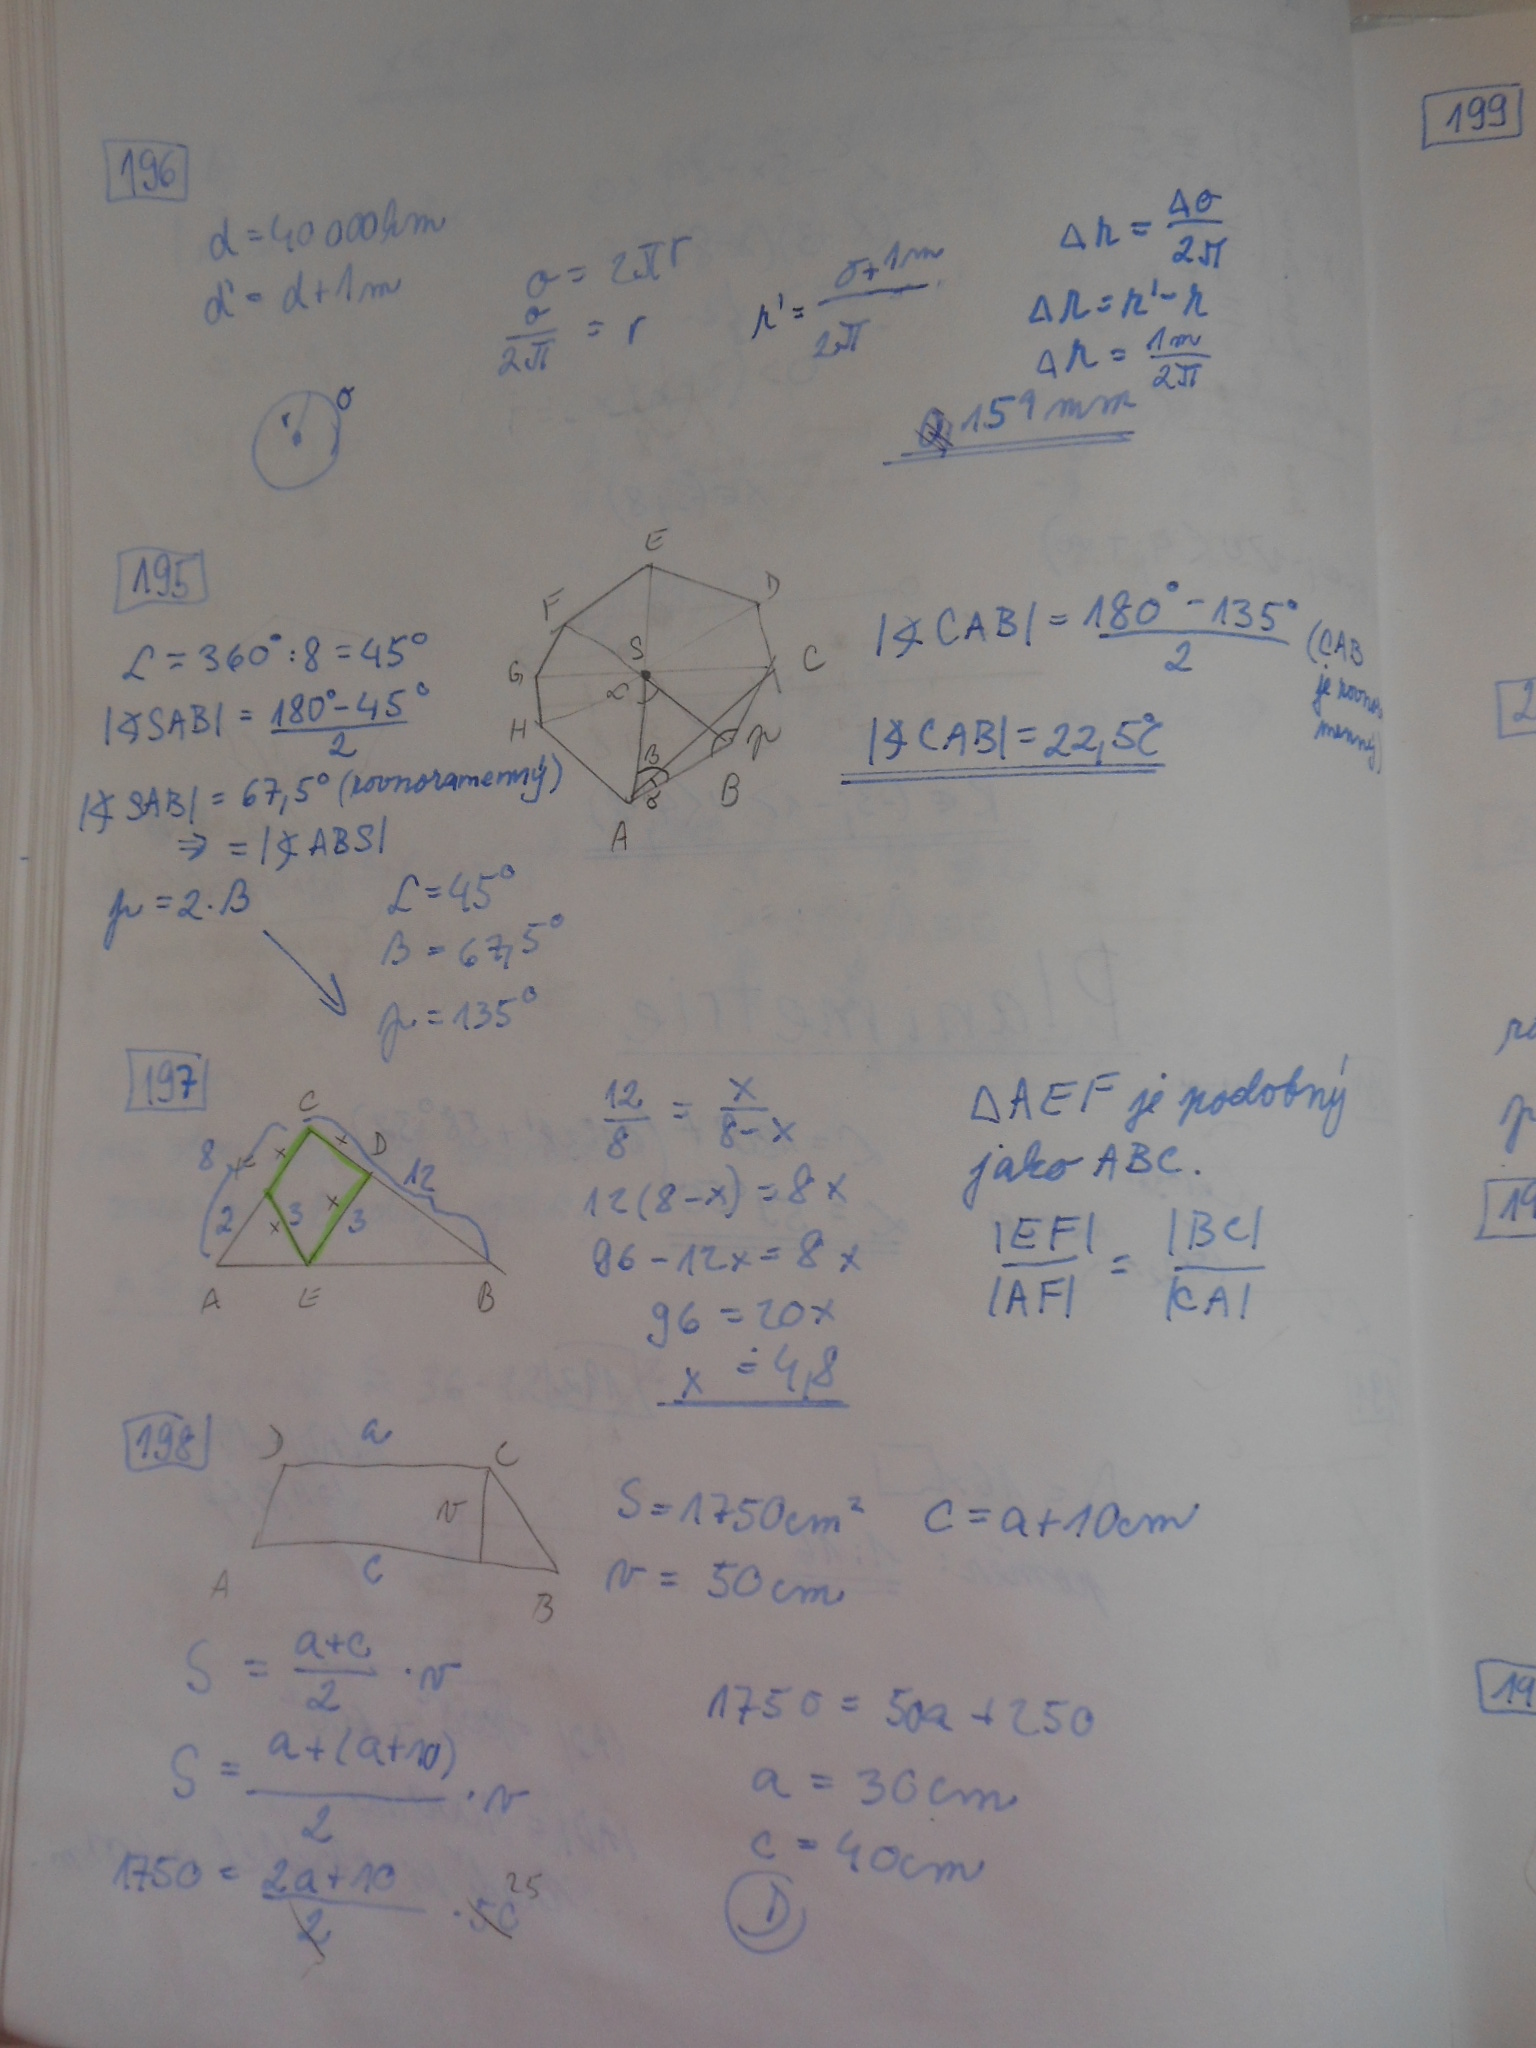 196
d = 40 000km
d' = d + 1m
σ = 2πr
σ/2π = r
r' = (σ + 1m)/2π
Δr = Δσ/2π
Δr = r' - r
Δr = 1m/2π
159 mm
r σ
199
195
α = 360° : 8 = 45°
|∢SAB| = (180° - 45°)/2
|∢SAB| = 67,5° (rovnoramenný)
⇒ = |∢ABS|
μ = 2·β
α = 45°
β = 67,5°
μ = 135°
E
F D
G S C
H α μ
β
γ B
A
|∢CAB| = (180° - 135°)/2 (CAB je rovnoramenný)
|∢CAB| = 22,5°
197
C
8 x x D 12
2 x 3 x 3
A E B
12/8 = x/(8-x)
12(8-x) = 8x
96 - 12x = 8x
96 = 20x
x = 4,8
ΔAEF je podobný
jako ABC.
|EF|/|AF| = |BC|/|CA|
198
D a C
v
A c B
S = 1750cm² c = a + 10cm
v = 50cm
S = (a+c)/2 · v
S = (a+(a+10))/2 · v
1750 = (2a+10)/2 · 50 25
1750 = 50a + 250
a = 30cm
c = 40cm
D